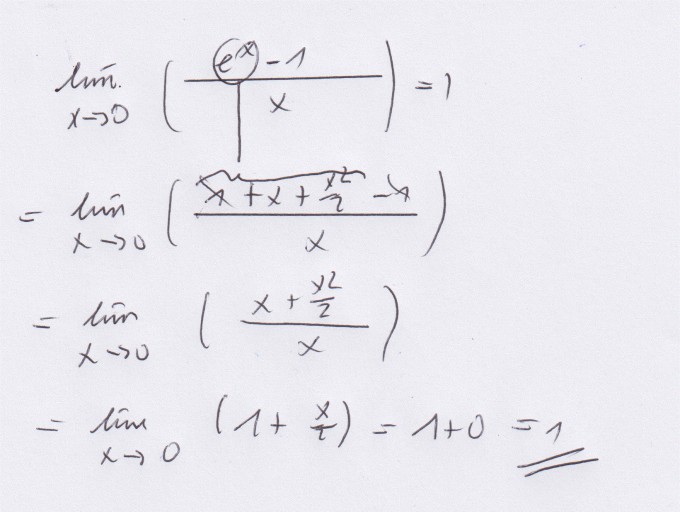 lim x→0 ( (e^x - 1) / x ) = 1
= lim x→0 ( (1 + x + x²/2 - 1) / x )
= lim x→0 ( (x + x²/2) / x )
= lim x→0 (1 + x/2) = 1+0 = 1